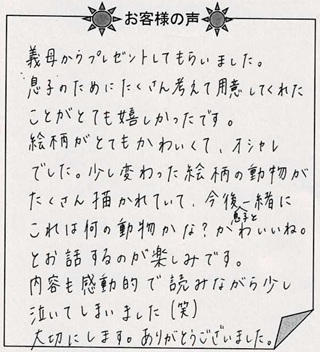 お客様の声
義母からプレゼントしてもらいました。
息子のためにたくさん考えて用意してくれた
ことがとても嬉しかったです。
絵柄がとてもかわいくて、オシャレ
でした。少し変わった絵柄の動物が
たくさん描かれていて、今後息子と一緒に
これは何の動物かな？かわいいね。
とお話するのが楽しみです。
内容も感動的で読みながら少し
泣いてしまいました(笑)
大切にします。ありがとうございました。